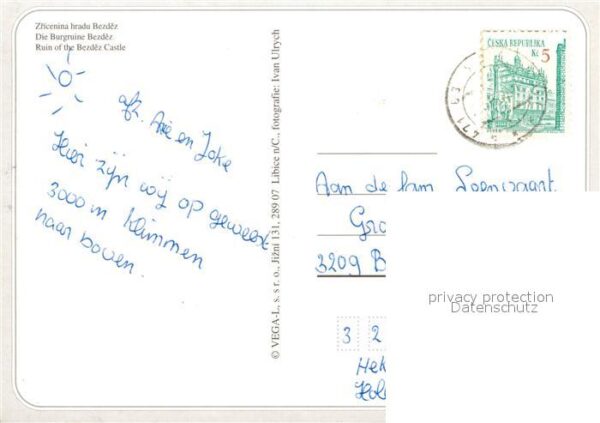 Zřícenina hradu Bezděz
Die Burgruine Bezděz
Ruin of the Bezděz Castle
afz. Arie en Joke
Hier zijn wij op geweest
3000 m klimmen
naar boven.
© VEGA-L, s. s r. o., Jižní 131, 289 07 Libice n/C., fotografie: Ivan Ulrych
ČESKÁ REPUBLIKA
Kč 5
471
Aan de fam
Gro
3209 B
3 2
Hek
Hol
privacy protection
Datenschutz